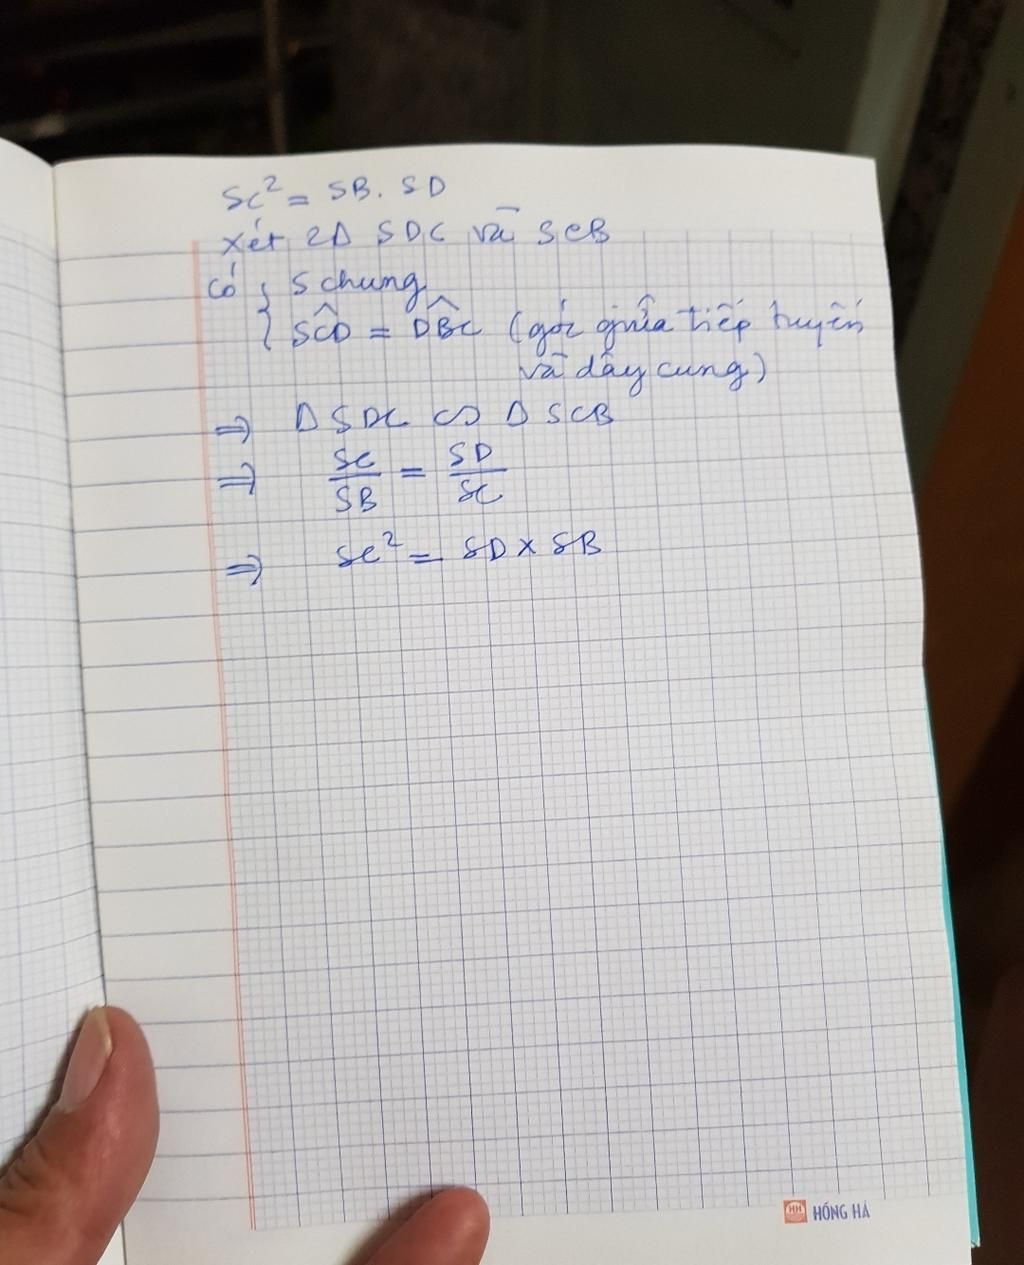 SC² = SB. SD
Xét 2Δ SDC và SCB
có { S chung
SĈD = DB̂C (góc giữa tiếp tuyến
và dây cung)
⇒ Δ SDC ∽ Δ SCB
⇒ SC/SB = SD/SC
⇒ SC² = SD x SB
HH HỒNG HÀ